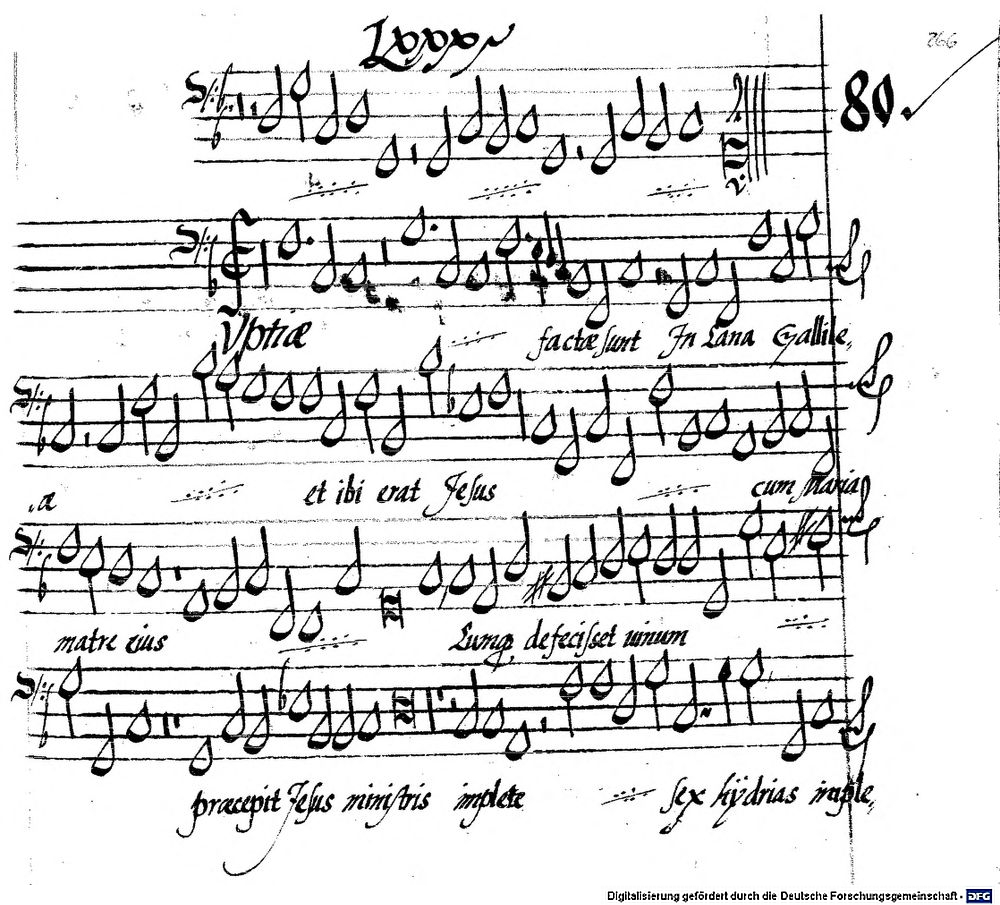 Lxxx
266
80.
Nuptiæ factæ sunt In Cana Gallile,
,æ et ibi erat Jesus cum Maria
matre eius Cumq defecisset uinum
præcepit Jesus ministris implete sex hÿdrias imple,
Digitalisierung gefördert durch die Deutsche Forschungsgemeinschaft - DFG